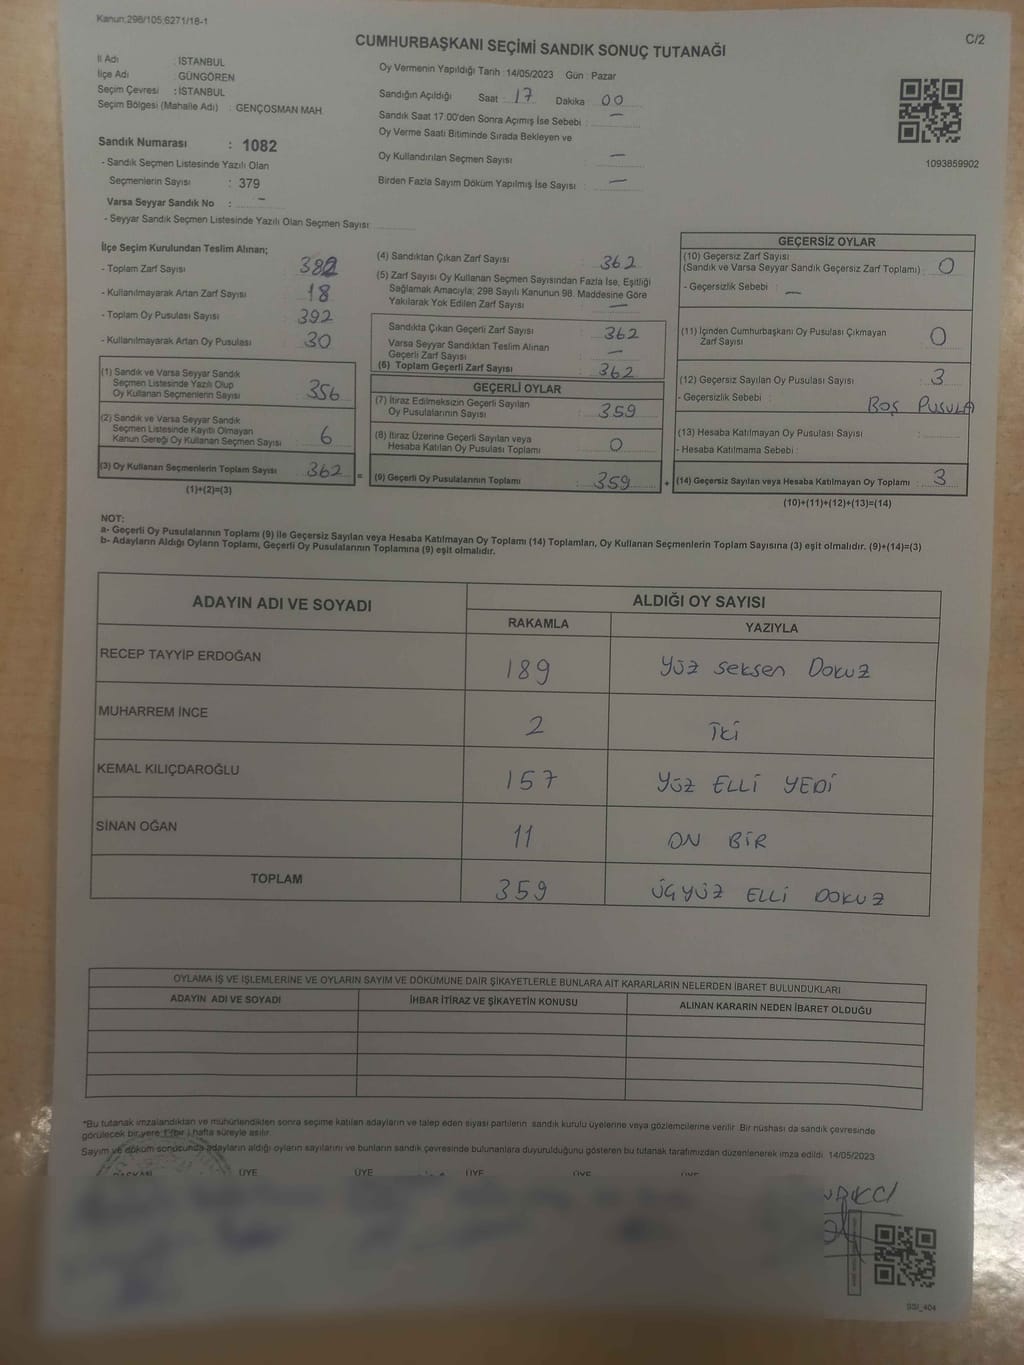 Kanun:298/105;6271/18-1
C/2
CUMHURBAŞKANI SEÇİMİ SANDIK SONUÇ TUTANAĞI
İl Adı : İSTANBUL
İlçe Adı : GÜNGÖREN
Seçim Çevresi : İSTANBUL
Seçim Bölgesi (Mahalle Adı) : GENÇOSMAN MAH.
Sandık Numarası : 1082
- Sandık Seçmen Listesinde Yazılı Olan
Seçmenlerin Sayısı : 379
Varsa Seyyar Sandık No : -
- Seyyar Sandık Seçmen Listesinde Yazılı Olan Seçmen Sayısı:
Oy Vermenin Yapıldığı Tarih :14/05/2023 Gün : Pazar
Sandığın Açıldığı Saat : 17 Dakika 00
Sandık Saat 17:00'den Sonra Açımış İse Sebebi : —
Oy Verme Saati Bitiminde Sırada Bekleyen ve
Oy Kullandırılan Seçmen Sayısı : —
Birden Fazla Sayım Döküm Yapılmış İse Sayısı : —
1093859902
İlçe Seçim Kurulundan Teslim Alınan;
- Toplam Zarf Sayısı : 382
- Kullanılmayarak Artan Zarf Sayısı : 18
- Toplam Oy Pusulası Sayısı : 392
- Kullanılmayarak Artan Oy Pusulası : 30
(1) Sandık ve Varsa Seyyar Sandık
Seçmen Listesinde Yazılı Olup
Oy Kullanan Seçmenlerin Sayısı : 356
(2) Sandık ve Varsa Seyyar Sandık
Seçmen Listesinde Kayıtlı Olmayan
Kanun Gereği Oy Kullanan Seçmen Sayısı : 6
(3) Oy Kullanan Seçmenlerin Toplam Sayısı : 362
(1)+(2)=(3)
(4) Sandıktan Çıkan Zarf Sayısı : 362
(5) Zarf Sayısı Oy Kullanan Seçmen Sayısından Fazla İse, Eşitliği
Sağlamak Amacıyla; 298 Sayılı Kanunun 98. Maddesine Göre
Yakılarak Yok Edilen Zarf Sayısı : —
Sandıkta Çıkan Geçerli Zarf Sayısı : 362
Varsa Seyyar Sandıktan Teslim Alınan
Geçerli Zarf Sayısı : —
(6) Toplam Geçerli Zarf Sayısı : 362
GEÇERLİ OYLAR
(7) İtiraz Edilmeksizin Geçerli Sayılan
Oy Pusulalarının Sayısı : 359
(8) İtiraz Üzerine Geçerli Sayılan veya
Hesaba Katılan Oy Pusulası Toplamı : 0
= (9) Geçerli Oy Pusulalarının Toplamı : 359 +
GEÇERSİZ OYLAR
(10) Geçersiz Zarf Sayısı
(Sandık ve Varsa Seyyar Sandık Geçersiz Zarf Toplamı) : 0
- Geçersizlik Sebebi : —
(11) İçinden Cumhurbaşkanı Oy Pusulası Çıkmayan
Zarf Sayısı : 0
(12) Geçersiz Sayılan Oy Pusulası Sayısı : 3
- Geçersizlik Sebebi : BOŞ PUSULA
(13) Hesaba Katılmayan Oy Pusulası Sayısı :
- Hesaba Katılmama Sebebi :
(14) Geçersiz Sayılan veya Hesaba Katılmayan Oy Toplamı : 3
(10)+(11)+(12)+(13)=(14)
NOT:
a- Geçerli Oy Pusulalarının Toplamı (9) ile Geçersiz Sayılan veya Hesaba Katılmayan Oy Toplamı (14) Toplamları, Oy Kullanan Seçmenlerin Toplam Sayısına (3) eşit olmalıdır. (9)+(14)=(3)
b- Adayların Aldığı Oyların Toplamı, Geçerli Oy Pusulalarının Toplamına (9) eşit olmalıdır.
ADAYIN ADI VE SOYADI ALDIĞI OY SAYISI
RAKAMLA YAZIYLA
RECEP TAYYİP ERDOĞAN 189 Yüz seksen Dokuz
MUHARREM İNCE 2 İki
KEMAL KILIÇDAROĞLU 157 YÜZ ELLİ YEDİ
SİNAN OĞAN 11 ON BİR
TOPLAM 359 ÜÇYÜZ ELLİ DOKUZ
OYLAMA İŞ VE İŞLEMLERİNE VE OYLARIN SAYIM VE DÖKÜMÜNE DAİR ŞİKAYETLERLE BUNLARA AİT KARARLARIN NELERDEN İBARET BULUNDUKLARI
ADAYIN ADI VE SOYADI İHBAR İTİRAZ VE ŞİKAYETİN KONUSU ALINAN KARARIN NEDEN İBARET OLDUĞU
*Bu tutanak imzalandıktan ve mühürlendikten sonra seçime katılan adayların ve talep eden siyasi partilerin sandık kurulu üyelerine veya gözlemcilerine verilir. Bir nüshası da sandık çevresinde
görülecek bir yere 1 (bir) hafta süreyle asılır.
Sayım ve döküm sonucunda adayların aldığı oyların sayılarını ve bunların sandık çevresinde bulunanlara duyurulduğunu gösteren bu tutanak tarafımızdan düzenlenerek imza edildi. 14/05/2023
BAŞKAN ÜYE ÜYE ÜYE ÜYE ÜYE
SSI_404